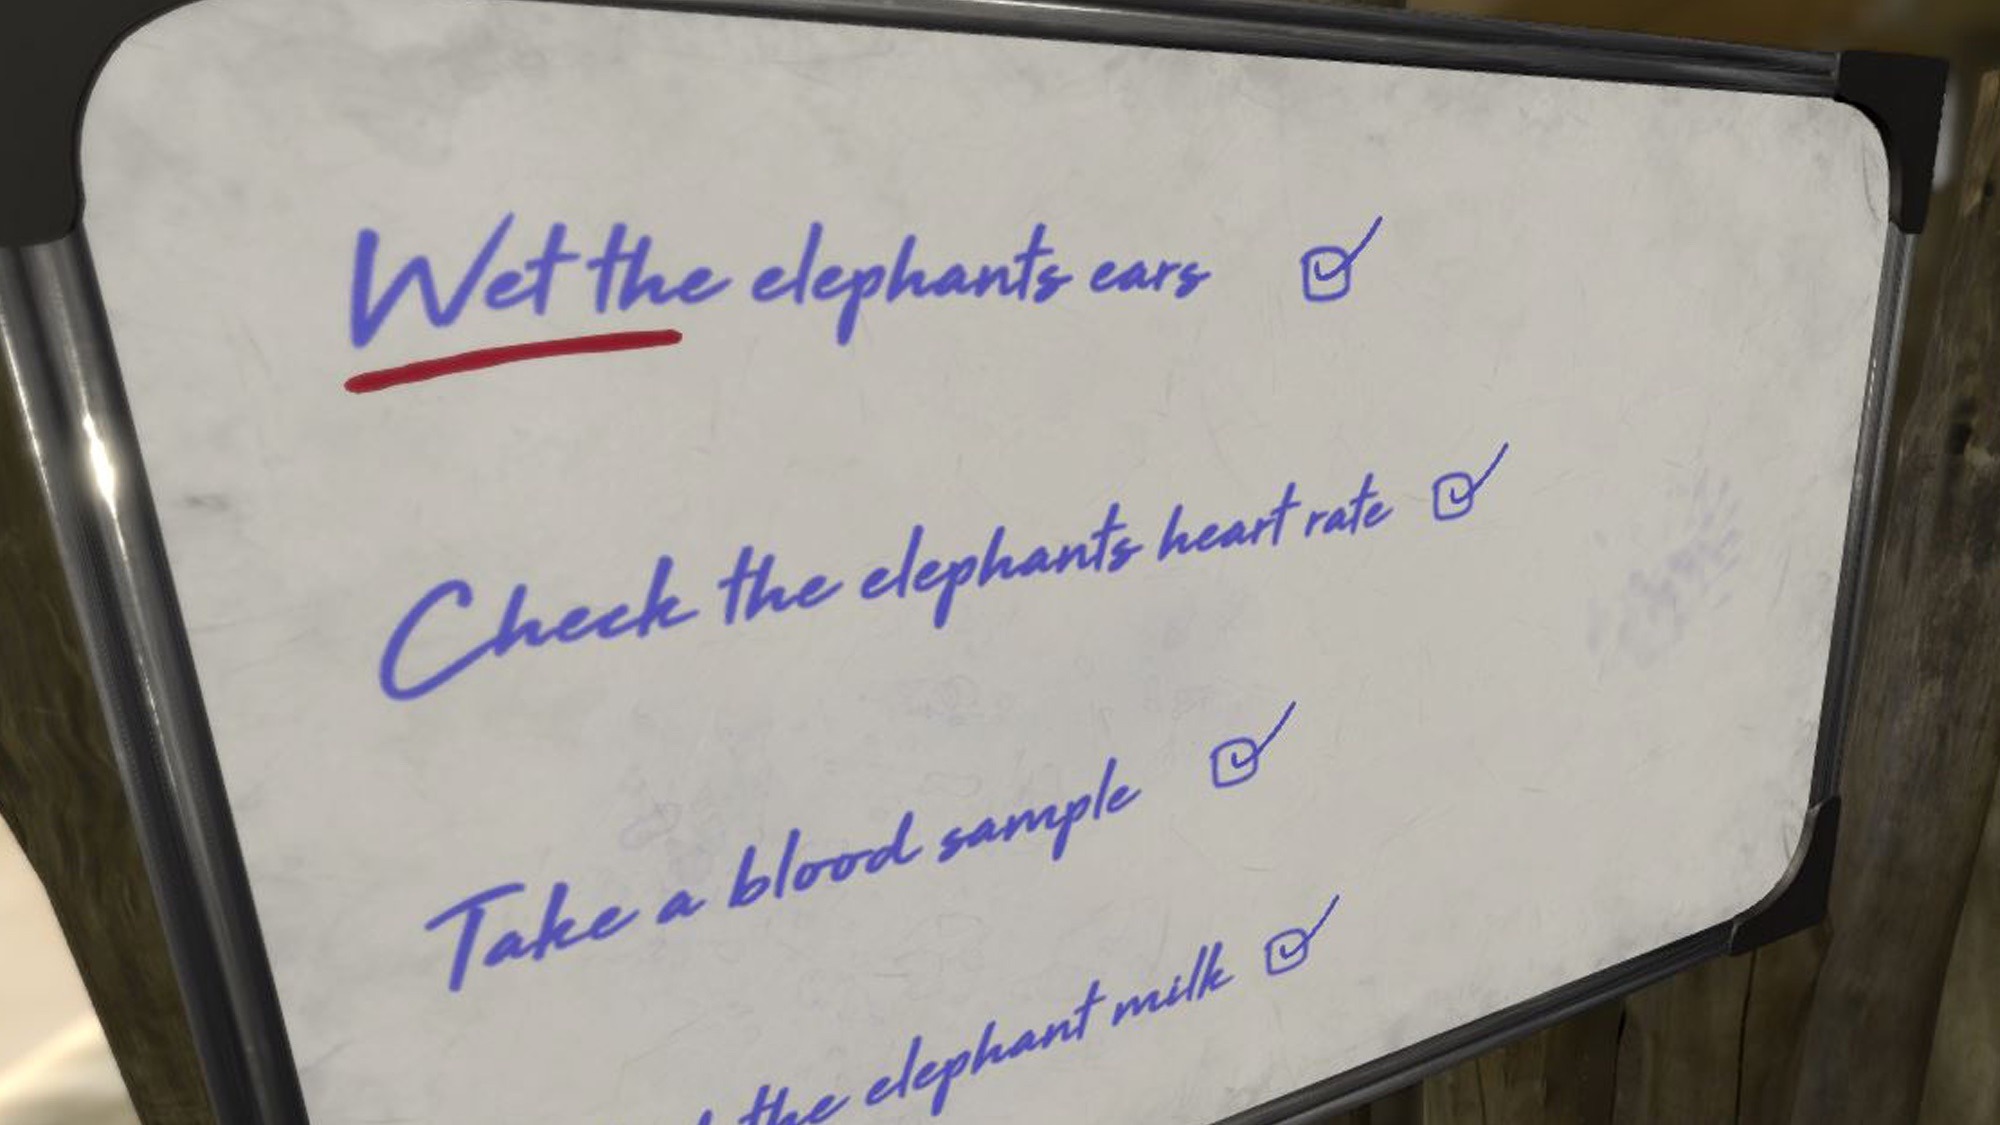 Wet the elephants ears
Check the elephants heart rate
Take a blood sample
the elephant milk